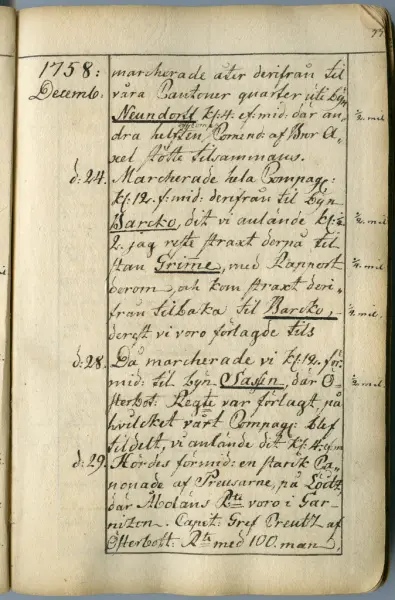 1758:
Decemb:
marcherade åter derifrån til
våra Cantoner quarter uti byn
Neundorff kl: 4. ef: mid: där an- ½. mil
dra helften Comend: af Bnr A-
xel stötte tilsammans.
d: 24. Marcherade hela Compag:
kl: 12. f: mid: derifrån til byn
Barcko, dit vi anlände kl: ½ ½. mil
2. jag reste straxt derpå til
stan Grime, med Rapport ¼. mil
derom, och kom straxt deri-
från tilbaka til Barcko, ¼. mil.
derest vi voro förlagde tils
d: 28. Då marcherade vi kl: 12. för-
mid: til byn Sassin, där Ö- ½. mil
sterbot: Regte var förlagt, på
hvilcket vårt Compag: blef
tildelt, vi anlände dit kl: 4. ef: m
d: 29. Hördes förmid: en starck Ca-
nonade af Preusarne, på Lóótz,
där Åboläns Rte voro i Gar-
nizon. Capit: Gref Creutz af
Österbott: Rte med 100. man,